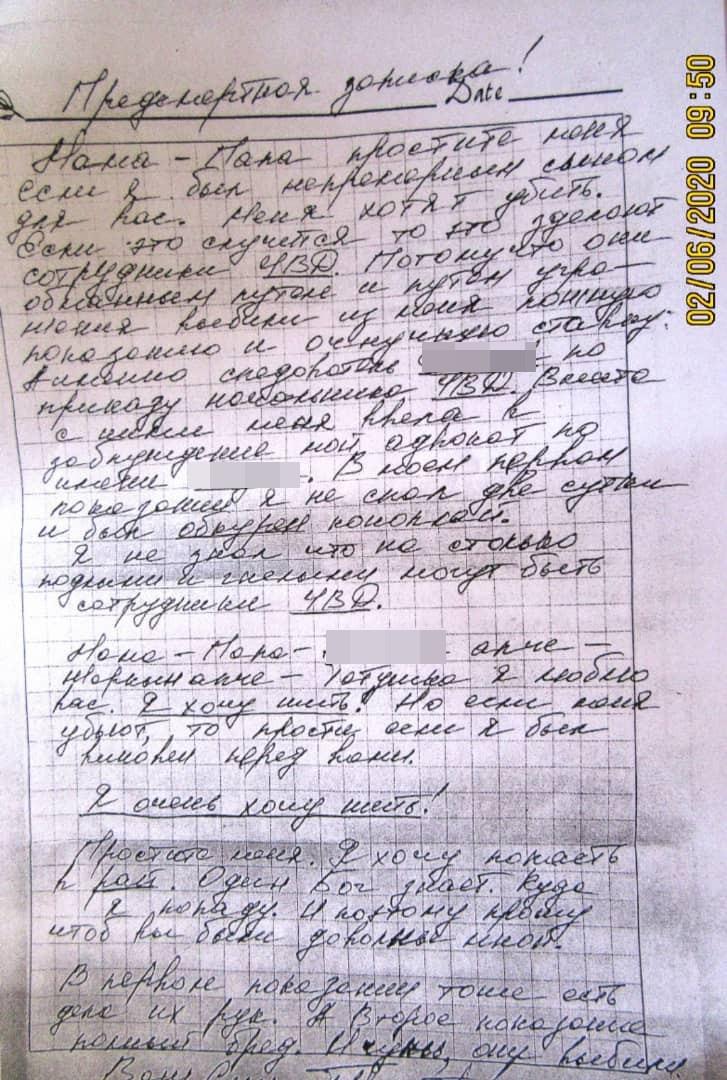 Предсмертная записка!
Date
Мама – Папа простите меня
если я был непремерным сыном
для вас. Меня хотят убить.
Если это случится то это зделают
сотрудники УВД. Потому что они
обманным путём и путем угро-
жения выбили из меня ложную
показанию и очную ставку.
А именно следователь по
приказу начальника УВД. Вместе
с ними меня ввела в
заблуждение мой адвокат по
имени . В моем первом
показании я не спал две сутки
и был обкурен коноплей.
Я не знал что на столько
подлыми и гнилыми могут быть
сотрудники УВД.
Мама – Папа – апче –
апче – я люблю
вас. Я хочу жить! Но если меня
убьют, то прости если я был
виновен перед вами.
Я очень хочу жить!
Простите меня. Я хочу попасть
в рай. Один Бог знает. Куда
я попаду. И поэтому прошу
чтоб вы были довольны мной.
В первом показании тоже есть
дело их рук. А Второе показание
полный бред. они выбили
02/06/2020 09:50